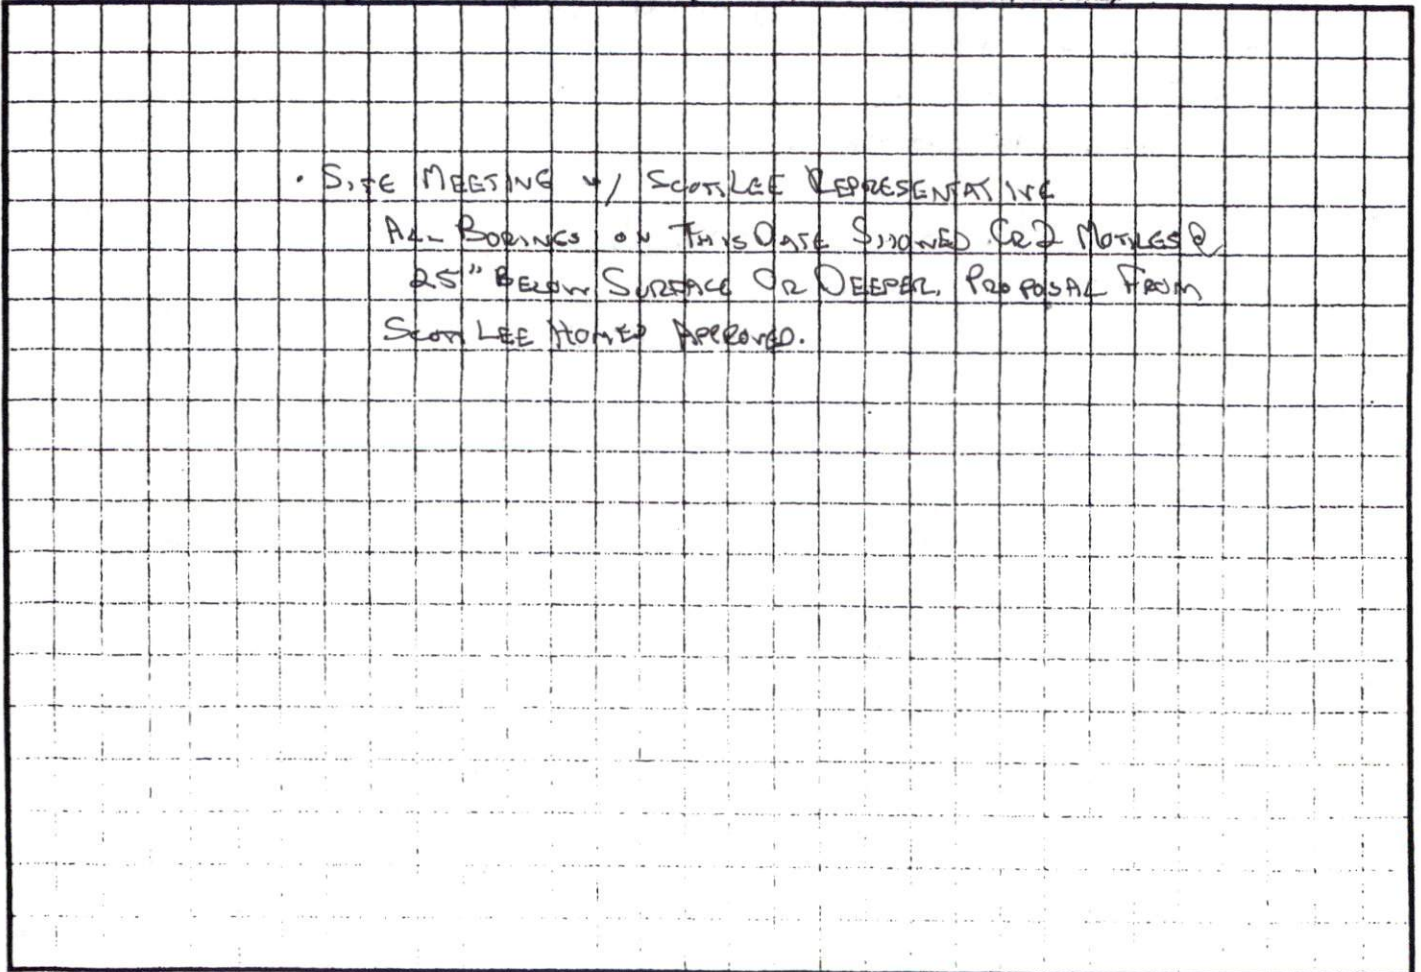 · SITE MEETING w/ SCOTT LEE REPRESENTATIVE
ALL BORINGS ON THIS DATE SHOWED CR2 MOTTLES @
25" BELOW SURFACE OR DEEPER. PROPOSAL FROM
SCOTT LEE HOMES APPROVED.